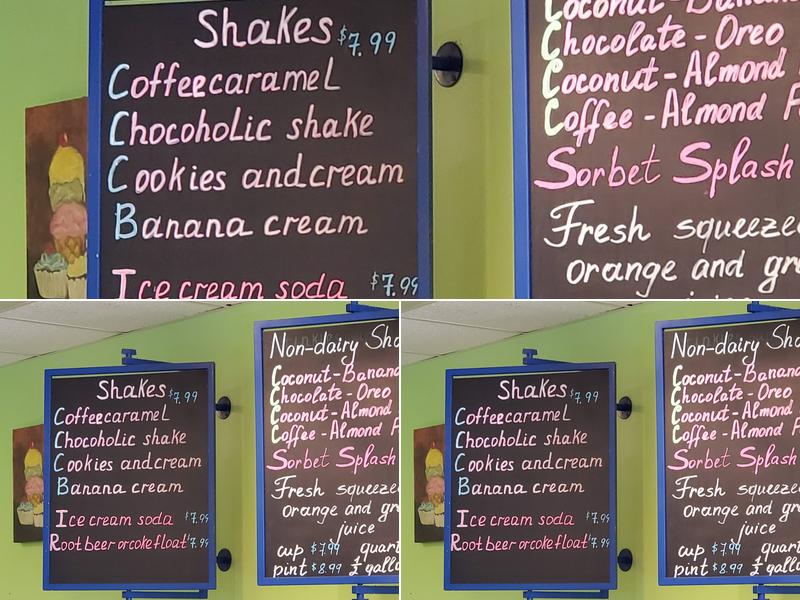 Shakes $7.99
Coffee caramel
Chocoholic shake
Cookies and cream
Banana cream
Ice cream soda $7.99
Coconut - Banana
Chocolate - Oreo
Coconut - Almond
Coffee - Almond
Sorbet Splash
Fresh squeeze
orange and gr
Shakes $7.99
Coffee caramel
Chocoholic shake
Cookies and cream
Banana cream
Ice cream soda $7.99
Root beer or coke float $7.99
Non-dairy Sha
Coconut - Banana
Chocolate - Oreo
Coconut - Almond
Coffee - Almond
Sorbet Splash
Fresh squeeze
orange and gr
juice
cup $7.99 quart
pint $8.99 ½ gallo
Shakes $7.99
Coffee caramel
Chocoholic shake
Cookies and cream
Banana cream
Ice cream soda $7.99
Root beer or coke float $7.99
Non-dairy Sha
Coconut - Banana
Chocolate - Oreo
Coconut - Almond
Coffee - Almond
Sorbet Splash
Fresh squeeze
orange and gr
juice
cup $7.99 quart
pint $8.99 ½ gallo